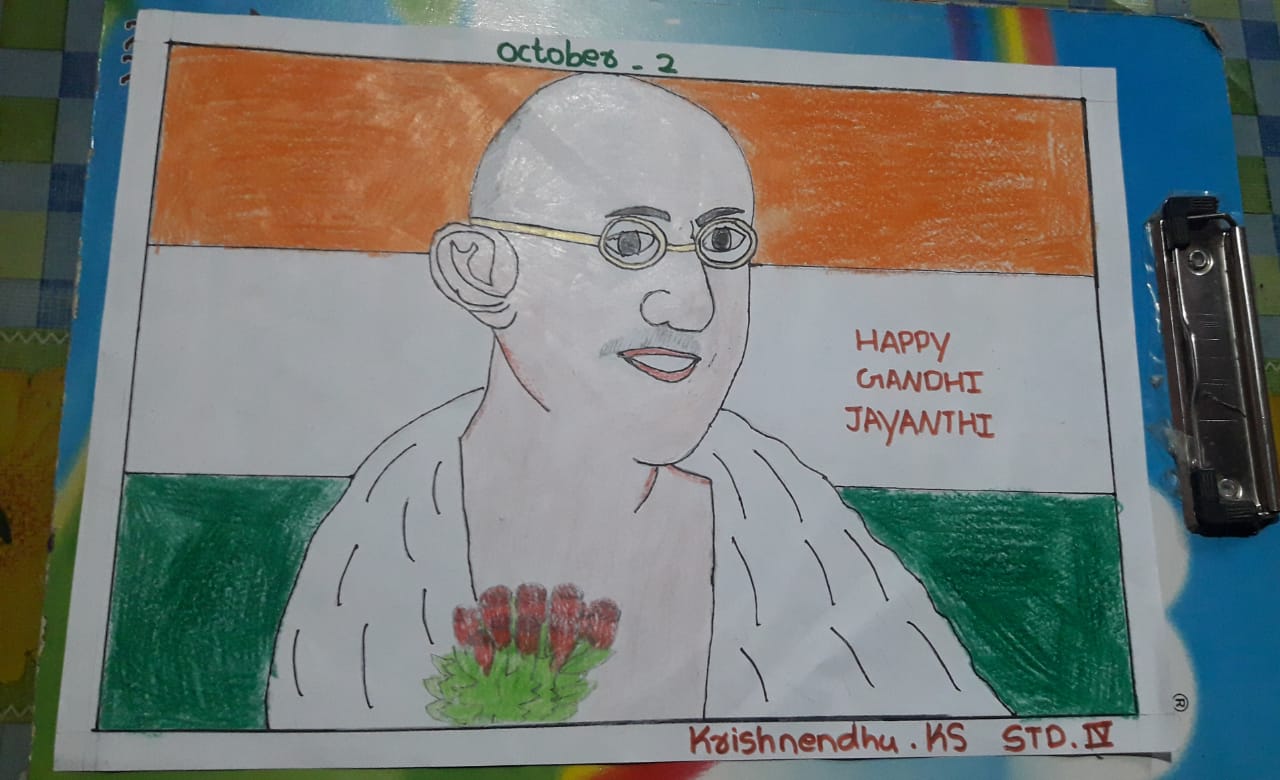 October - 2
HAPPY
GANDHI
JAYANTHI
Krishnendhu . KS STD. IV
®